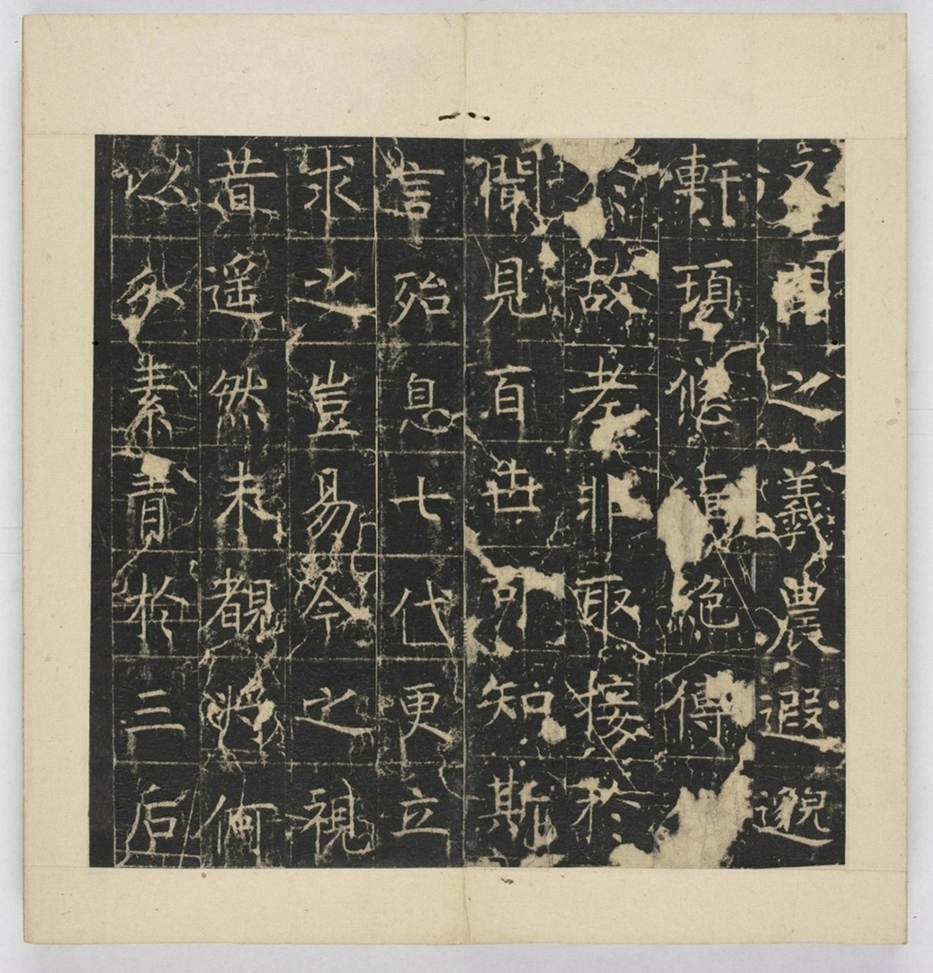 之羲農遐邈
軒頊悠絶傳
故老非取接於
聞見百世可知斯
言殆息七代更立
求之豈易今之視
昔遥然未覩將何
以多素責於三后